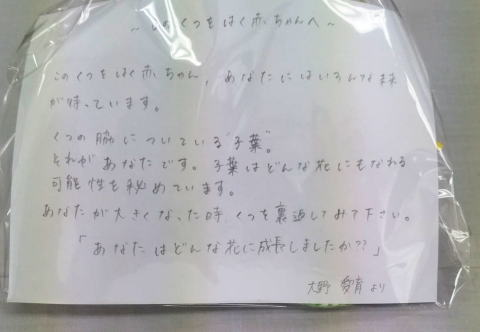 ~このくつをはく赤ちゃんへ~
このくつをはく赤ちゃん,あなたにはいろんな未来
が待っています。
くつの脇についている"子葉"。
それがあなたです。子葉はどんな花にもなれる
可能性を秘めています。
あなたが大きくなった時、くつを裏返してみて下さい。
「あなたはどんな花に成長しましたか??」
大野 愛育 より